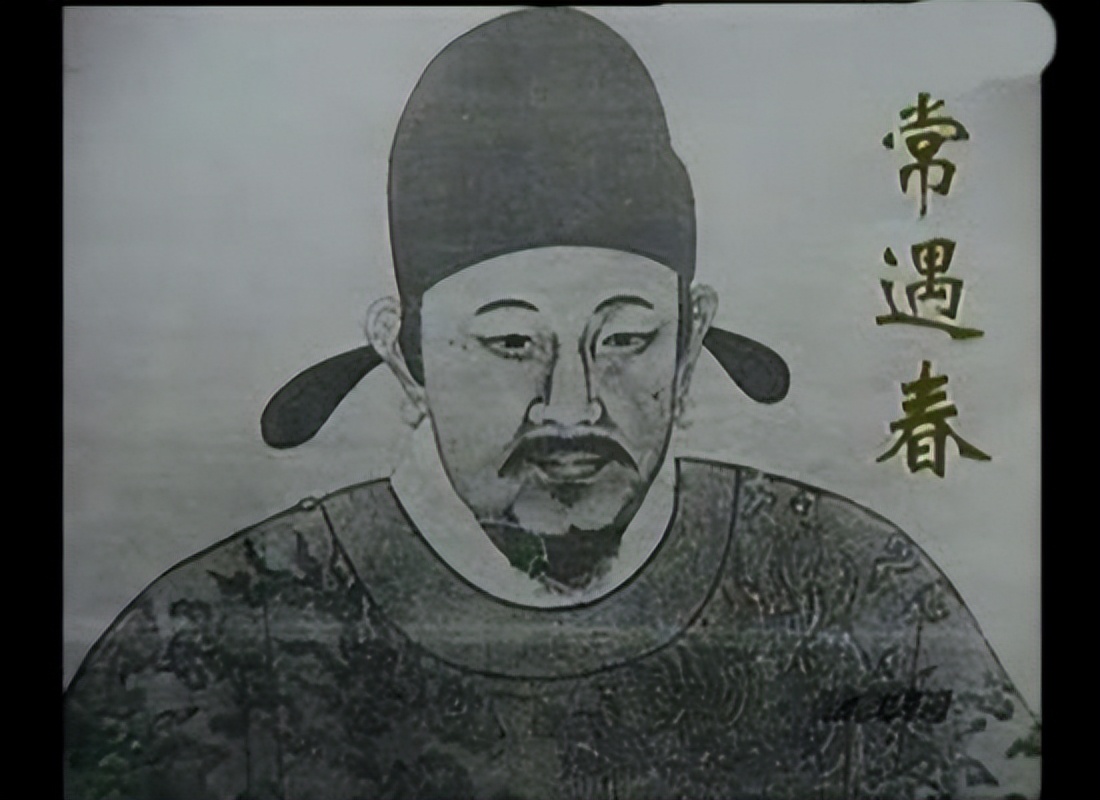 常遇春